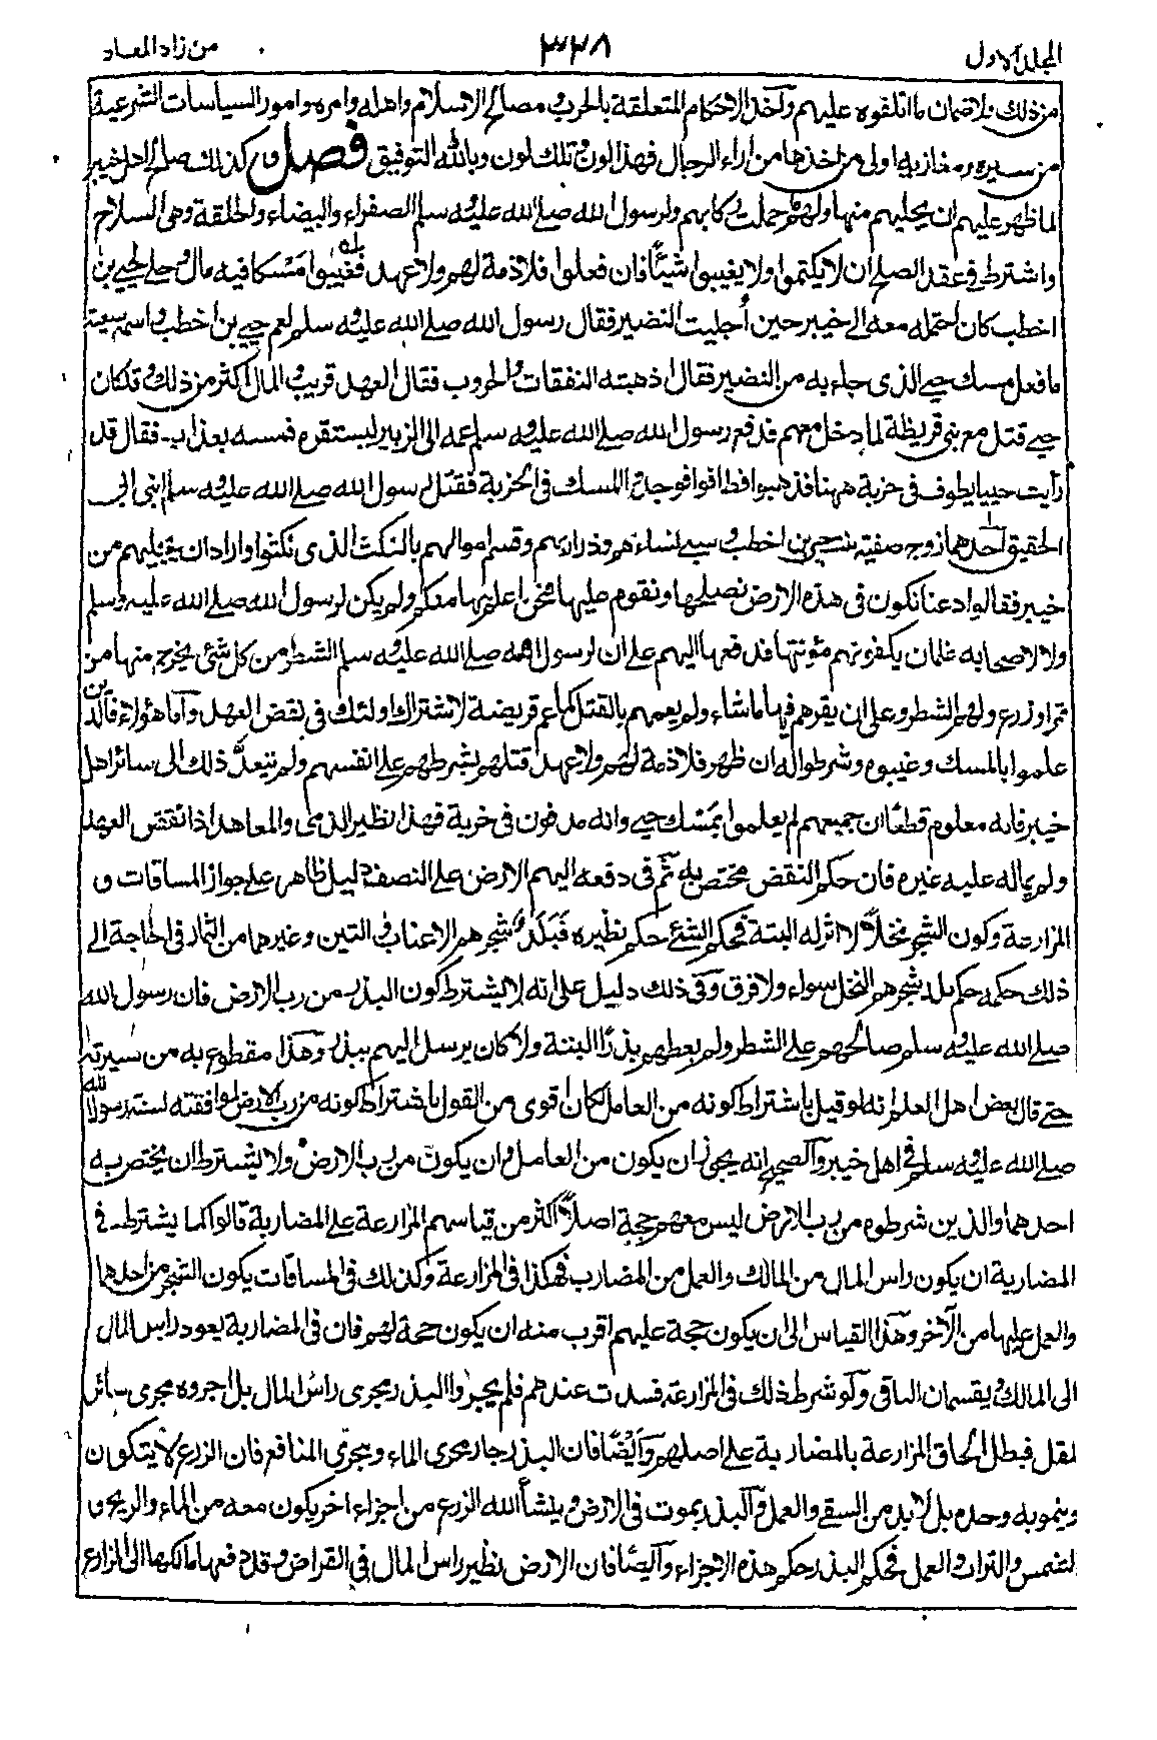 المجلد الاول
٣٣٨
من زاد المعاد
من ذلك فلا ضمان ما اتلفوه عليهم وآخذ الاحكام المتعلقة بالحرب و مصالح الاسلام واهله وامره وامور السياسات الشرعية
من سيره ومغازيه اولى من اخذها من اراء الرجال فهذا لون وتلك لون وبالله التوفيق فصل وكذلك صلح اهل خيبر
لما ظهر عليهم ان يجليهم منها ولهم ما حملت ركابهم ولرسول الله صلى الله عليه وسلم الصفراء والبيضاء والحلقة وهى السلاح
واشترط فى عقد الصلح ان لا يكتموا ولا يغيبوا شيئًا فان فعلوا فلا ذمة لهم ولا عهد فغيبوا مَسْكا فيه مال وحلى لحيى بن
اخطب كان احتمله معه الى خيبر حين اُجليت النضير فقال رسول الله صلى الله عليه وسلم لعم حيى بن اخطب واسمه سعية
ما فعل مسك حيى الذى جاء به من النضير فقال اذهبته النفقات والحروب فقال العهد قريب والمال اكثر من ذلك وقد كان
حيى قتل مع بنى قريظة لما دخل معهم فدفع رسول الله صلى الله عليه وسلم عمه الى الزبير ليستقره فمسه بعذاب فقال قد
رأيت حييا يطوف فى خربة ههنا فذهبوا فطافوا فوجدوا المسك فى الخربة فقتل رسول الله صلى الله عليه وسلم ابنى ابى
الحقيق احدهما زوج صفية بنت حيى بن اخطب و سبى نساءهم وذراريهم وقسم اموالهم بالنكث الذى نكثوا واراد ان يجليهم من
خيبر فقالوا دعنا نكون فى هذه الارض نصلحها ونقوم عليها فنحن اعلم بها منكم ولم يكن لرسول الله صلى الله عليه وسلم
ولا لاصحابه غلمان يكفونهم مئونتها فدفعها اليهم على ان لرسول الله صلى الله عليه وسلم الشطر من كل شئ يخرج منها من
ثمر او زرع ولهم الشطر وعلى ان يقرهم فيها ما شاء ولم يعمهم بالقتل كما عم قريضة لاشتراك اولئك فى نقض العهد وأما هؤلاء فالذين
علموا بالمسك وغيبوه وشرطوا له ان ظهر فلا ذمة لهم ولا عهد قتلهم بشرطهم على انفسهم ولم يتعدّ ذلك الى سائر اهل
خيبر فانه معلوم قطعًا ان جميعهم لم يعلموا بمَسْك حيى وانه مدفون فى خربة فهذا نظير الذمى والمعاهد اذا نقض العهد
ولم يماله عليه غيره فان حكم النقض مختص به ثم فى دفعه اليهم الارض على النصف دليل ظاهر على جواز المساقات و
المزارعة وكون الشجر نخلًا لا اثر له البتة فحكم الشئ حكم نظيره فبلدٌ شجرهم الاعناب و التين وغيرها من الثمار فى الحاجة الى
ذلك حكمه حكم بلد شجرهم النخل سواء ولا فرق وفى ذلك دليل على انه لا يشترط كون البذر من رب الارض فان رسول الله
صلى الله عليه وسلم صالحهم على الشطر ولم يعطهم بذرًا البتة ولا كان يرسل اليهم ببذر وهذا مقطوع به من سيرته
حتى قال بعض اهل العلم انه لو قيل باشتراط كونه من العامل لكان اقوى من القول باشتراط كونه من رب الارض لموافقته لسنة رسول الله
صلى الله عليه وسلم فى اهل خيبر والصحيح انه يجوز ان يكون من العامل وان يكون من رب الارض ولا يشترط ان يختص به
احدهما والذين شرطوه من رب الارض ليس معهم حجة اصلًا اكثر من قياسهم المزارعة على المضاربة قالوا كما يشترط فى
المضاربة ان يكون راس المال من المالك والعمل من المضارب فهكذا فى المزارعة وكذلك فى المساقات يكون الشجر من احدهما
والعمل عليها من الآخر وهذا القياس الى ان يكون حجة عليهم اقرب منه ان يكون حجة لهم فان فى المضاربة يعود راس المال
الى المالك ويقتسمان الباقى ولو شرط ذلك فى المزارعة فسدت عندهم فلم يجروا البذر مجرى راس المال بل اجروه مجرى سائر
لبقل فبطل الحاق المزارعة بالمضاربة على اصلهم وأيضًا فان البذر جار مجرى الماء ومجرى المنافع فان الزرع لا يتكون
وينمو به وحده بل لا بد من السقى والعمل والبذر يموت فى الارض وينشأ الله الزرع من اجزاء اخر يكون معه من الماء والريح و
الشمس والتراب والعمل فحكم البذر حكم هذه الاجزاء وأيضًا فان الارض نظير راس المال فى القراض وقد دفعها مالكها الى المزارع